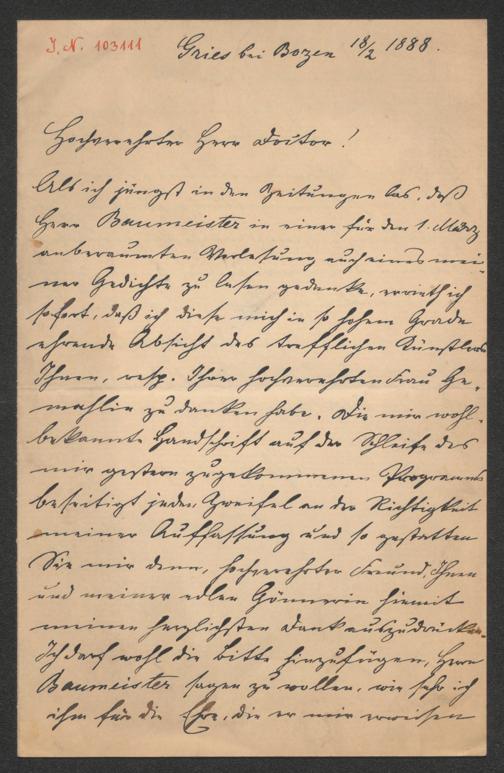 I. N. 103111
Gries bei Bozen 18/2 1888.
Hochverehrter Herr Doctor!
Als ich jüngst in den Zeitungen las, daß
Herr Baumeister in einer für den 1. März
anberaumten Vorlesung auch eines mei-
ner Gedichte zu lesen gedenke, errieth ich
sofort, daß ich diese mich in so hohem Grade
ehrende Absicht des trefflichen Künstlers
Ihnen, resp. Ihrer hochverehrten Frau Ge-
mahlin zu danken habe. Die mir wohl-
bekannte Handschrift auf der Schleife des
mir gestern zugekommenen Programms
beseitigt jeden Zweifel an der Richtigkeit
meiner Auffassung und so gestatten
Sie mir denn, hochverehrter Freund, Ihnen
und meiner edlen Gönnerin hiemit
meinen herzlichsten Dank auszudrücken.
Ich darf wohl die Bitte hinzufügen, Herrn
Baumeister sagen zu wollen, wie sehr ich
ihm für die Ehre, die er mir erweisen